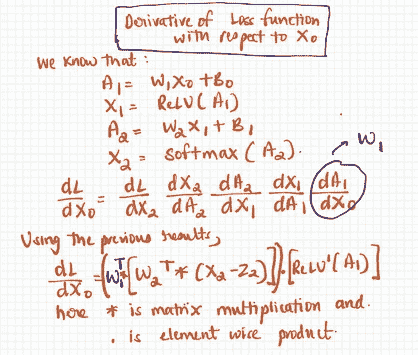 Derivative of Loss function
with respect to X₀
We know that:
A₁ = W₁X₀ + B₀
X₁ = ReLU(A₁)
A₂ = W₂X₁ + B₁
X₂ = softmax(A₂).
W₁
dL/dX₀ = dL/dX₂ dX₂/dA₂ dA₂/dX₁ dX₁/dA₁ dA₁/dX₀
Using the previous results,
dL/dX₀ = (W₁ᵀ*[W₂ᵀ * (X₂-Z₂)]).[ReLU'(A₁)]
here * is matrix multiplication and
. is element wise product.